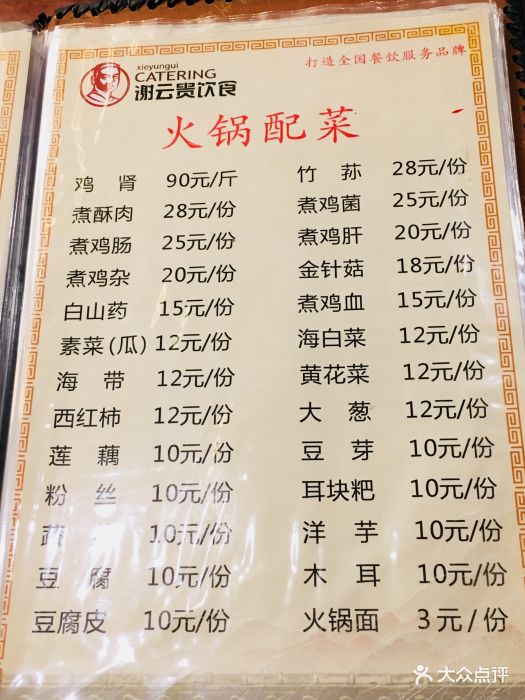 xieyungui
CATERING
谢云贵饮食
打造全国餐饮服务品牌
火锅配菜
鸡肾 90元/斤
竹荪 28元/份
煮酥肉 28元/份
煮鸡菌 25元/份
煮鸡肠 25元/份
煮鸡肝 20元/份
煮鸡杂 20元/份
金针菇 18元/份
白山药 15元/份
煮鸡血 15元/份
素菜(瓜) 12元/份
海白菜 12元/份
海带 12元/份
黄花菜 12元/份
西红柿 12元/份
大葱 12元/份
莲藕 10元/份
豆芽 10元/份
粉丝 10元/份
耳块粑 10元/份
10元/份
洋芋 10元/份
豆腐 10元/份
木耳 10元/份
豆腐皮 10元/份
火锅面 3元/份
大众点评